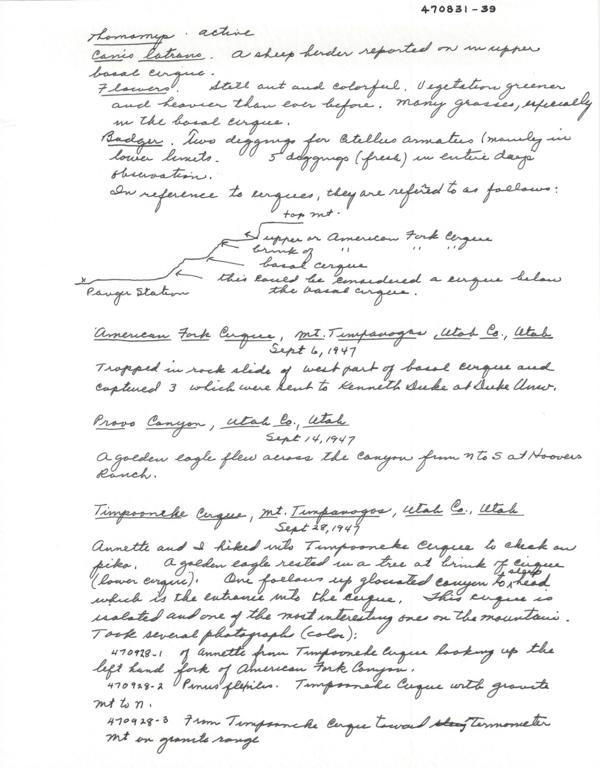 470831-39
Thomomys. active
Canis latrans. A sheep herder reported on in upper
basal cirque.
Flowers. Still out and colorful. Vegetation greener
and heavier than ever before. Many grasses, especially
in the basal cirque.
Badger. Two diggings for Citellus armatus (mainly in
lower limits. 5 diggings (fresh) in entire days
observation.
In reference to cirques, they are refered to as follows:
top mt.
upper or American Fork Cirque
brink of " " "
basal cirque
this could be considered a cirque below
the basal cirque.
x
Ranger Station
American Fork Cirque, Mt. Timpanogos, Utah Co., Utah
Sept 6, 1947
Trapped in rock slide of west part of basal cirque and
captured 3 which were sent to Kenneth Duke at Duke Univ.
Provo Canyon, Utah Co., Utah
Sept 14, 1947
A golden eagle flew across the canyon from N to S at Hoovers
Ranch.
Timpooneke Cirque, Mt. Timpanogos, Utah Co., Utah
Sept 28, 1947
Annette and I hiked into Timpooneke Cirque to check on
pika. A golden eagle rested in a tree at brink of cirque
(lower cirque). One follows up glaciated canyon to head
which is the entrance into the cirque. This cirque is
isolated and one of the most interesting ones on the mountain.
Took several photographs (color):
470928-1 of Annette from Timpooneke Cirque looking up the
left hand fork of American Fork Canyon.
470928-2 Pinus flexilis. Timpooneke Cirque with granite
mt to n.
470928-3 From Timpooneke Cirque toward Termometer
Mt on granite range